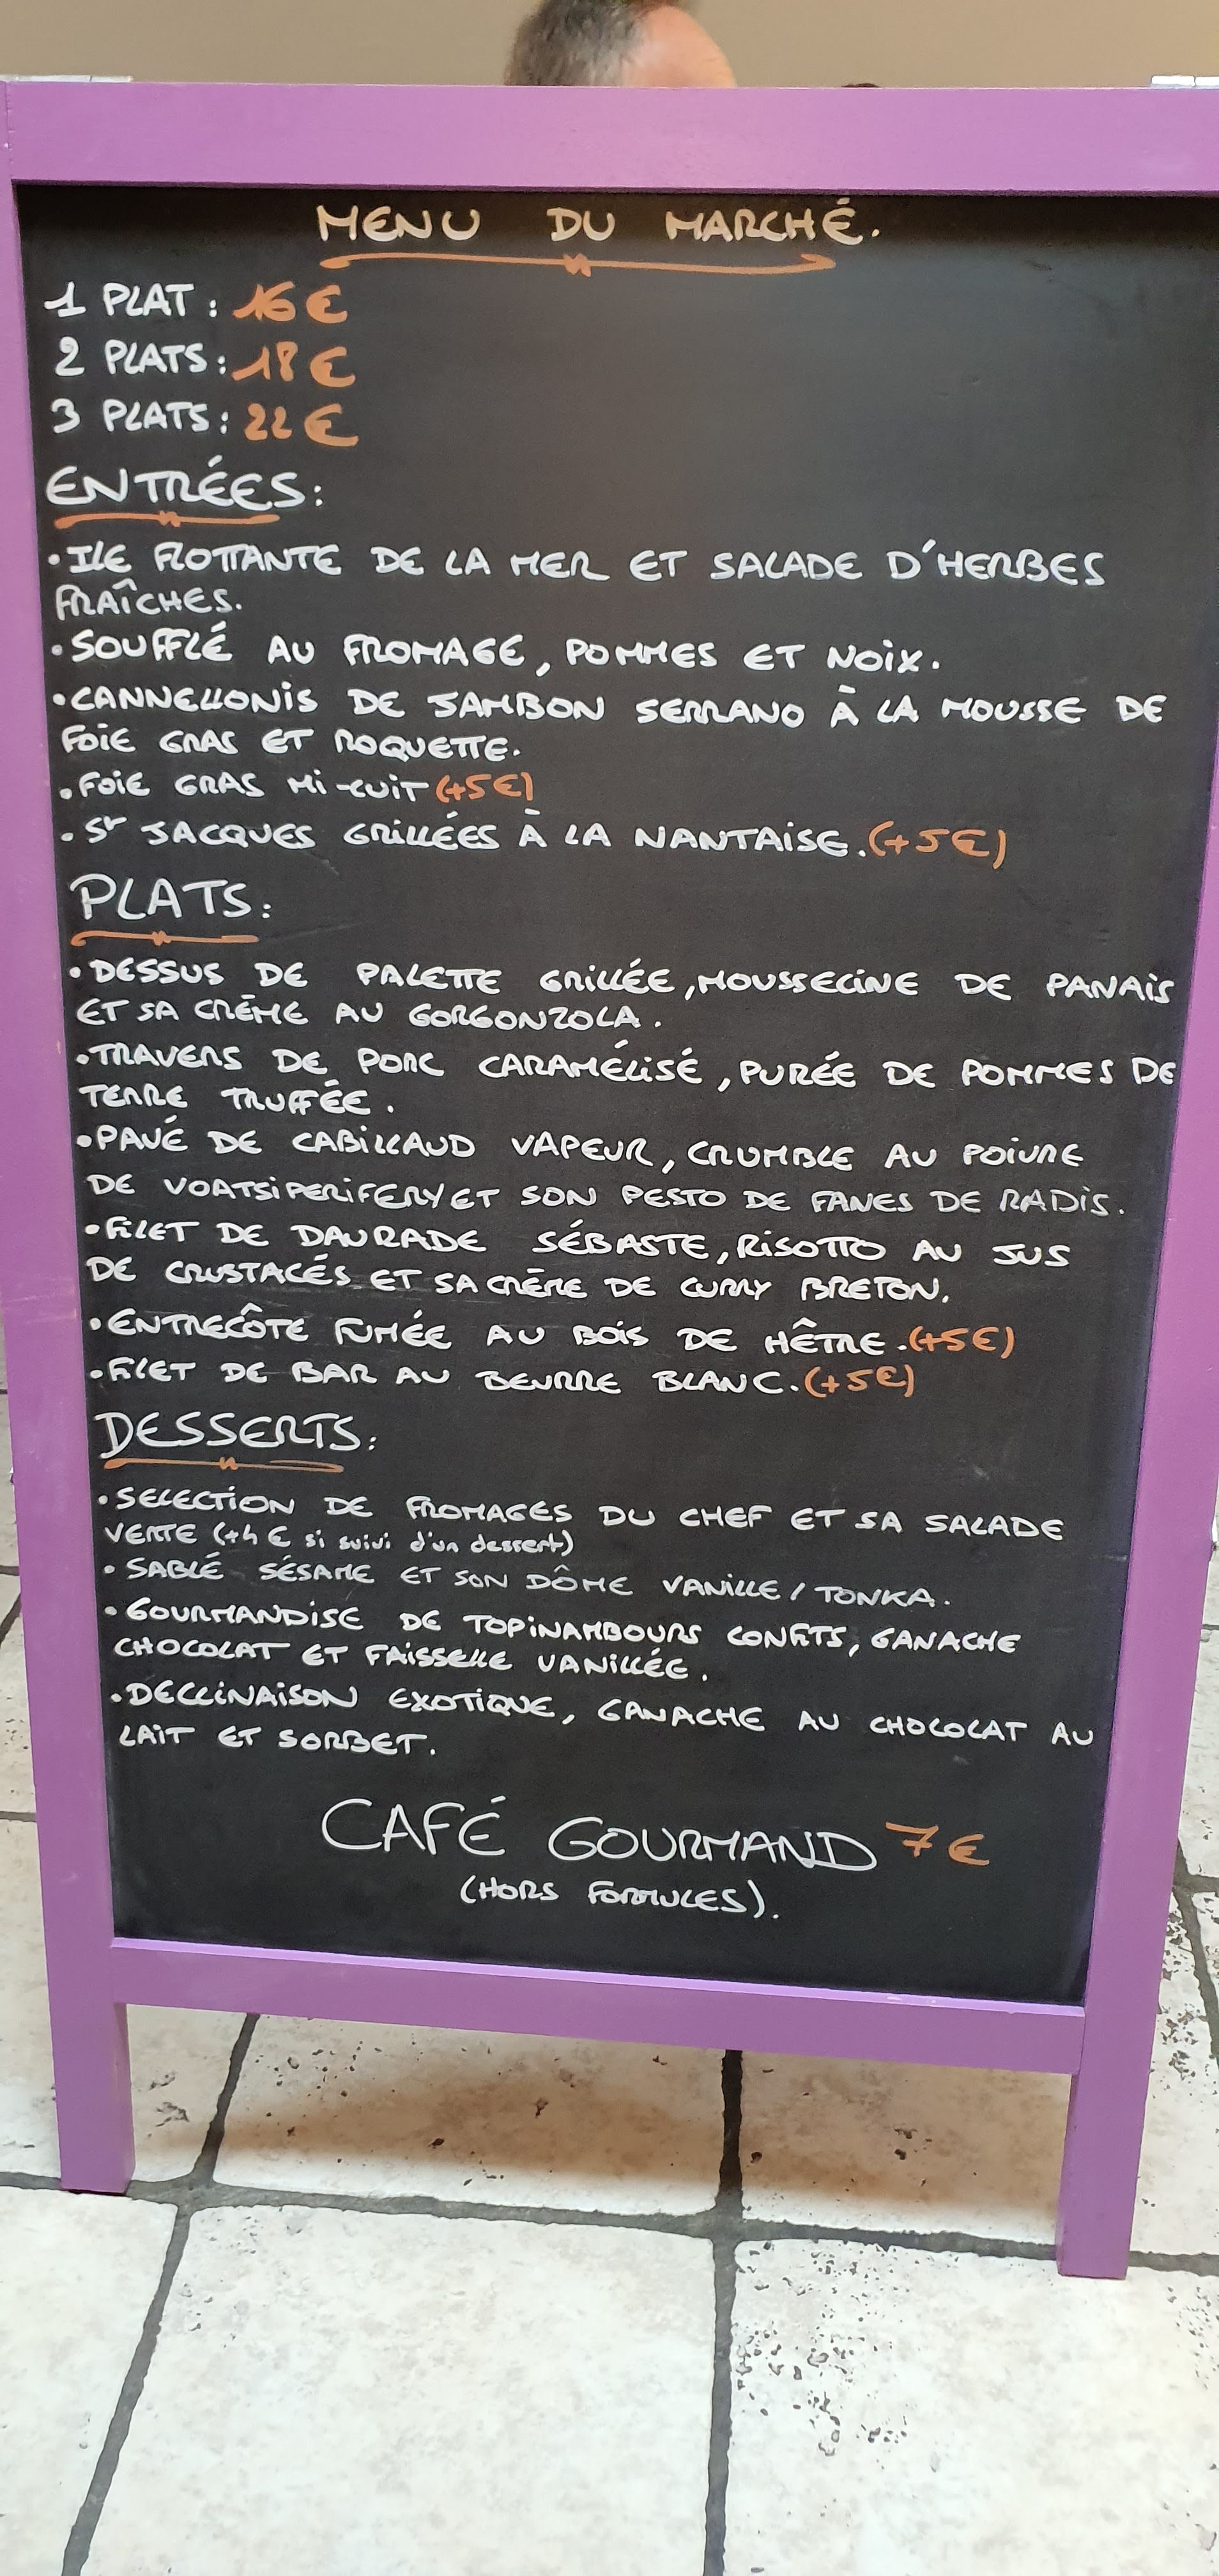 MENU DU MARCHÉ.
1 PLAT : 16 €
2 PLATS : 18 €
3 PLATS : 22 €
ENTRÉES :
• ILE FLOTTANTE DE LA MER ET SALADE D'HERBES
FRAÎCHES.
• SOUFFLÉ AU FROMAGE, POMMES ET NOIX.
• CANNELLONIS DE JAMBON SERRANO À LA MOUSSE DE
FOIE GRAS ET ROQUETTE.
• FOIE GRAS MI-CUIT (+5€)
• ST JACQUES GRILLÉES À LA NANTAISE. (+5€)
PLATS :
• DESSUS DE PALETTE GRILLÉE, MOUSSELINE DE PANAIS
ET SA CRÈME AU GORGONZOLA.
• TRAVERS DE PORC CARAMÉLISÉ, PURÉE DE POMMES DE
TERRE TRUFFÉE.
• PAVÉ DE CABILLAUD VAPEUR, CRUMBLE AU POIVRE
DE VOATSIPERIFERY ET SON PESTO DE FANES DE RADIS.
• FILET DE DAURADE SÉBASTE, RISOTTO AU JUS
DE CRUSTACÉS ET SA CRÈME DE CURRY BRETON.
• ENTRECÔTE FUMÉE AU BOIS DE HÊTRE. (+5€)
• FILET DE BAR AU BEURRE BLANC. (+5€)
DESSERTS :
• SELECTION DE FROMAGES DU CHEF ET SA SALADE
VERTE (+4 € si suivi d'un dessert)
• SABLÉ SÉSAME ET SON DÔME VANILLE / TONKA.
• GOURMANDISE DE TOPINAMBOURS CONFITS, GANACHE
CHOCOLAT ET FAISSELLE VANILLÉE.
• DECLINAISON EXOTIQUE, GANACHE AU CHOCOLAT AU
LAIT ET SORBET.
CAFÉ GOURMAND 7 €
(HORS FORMULES).